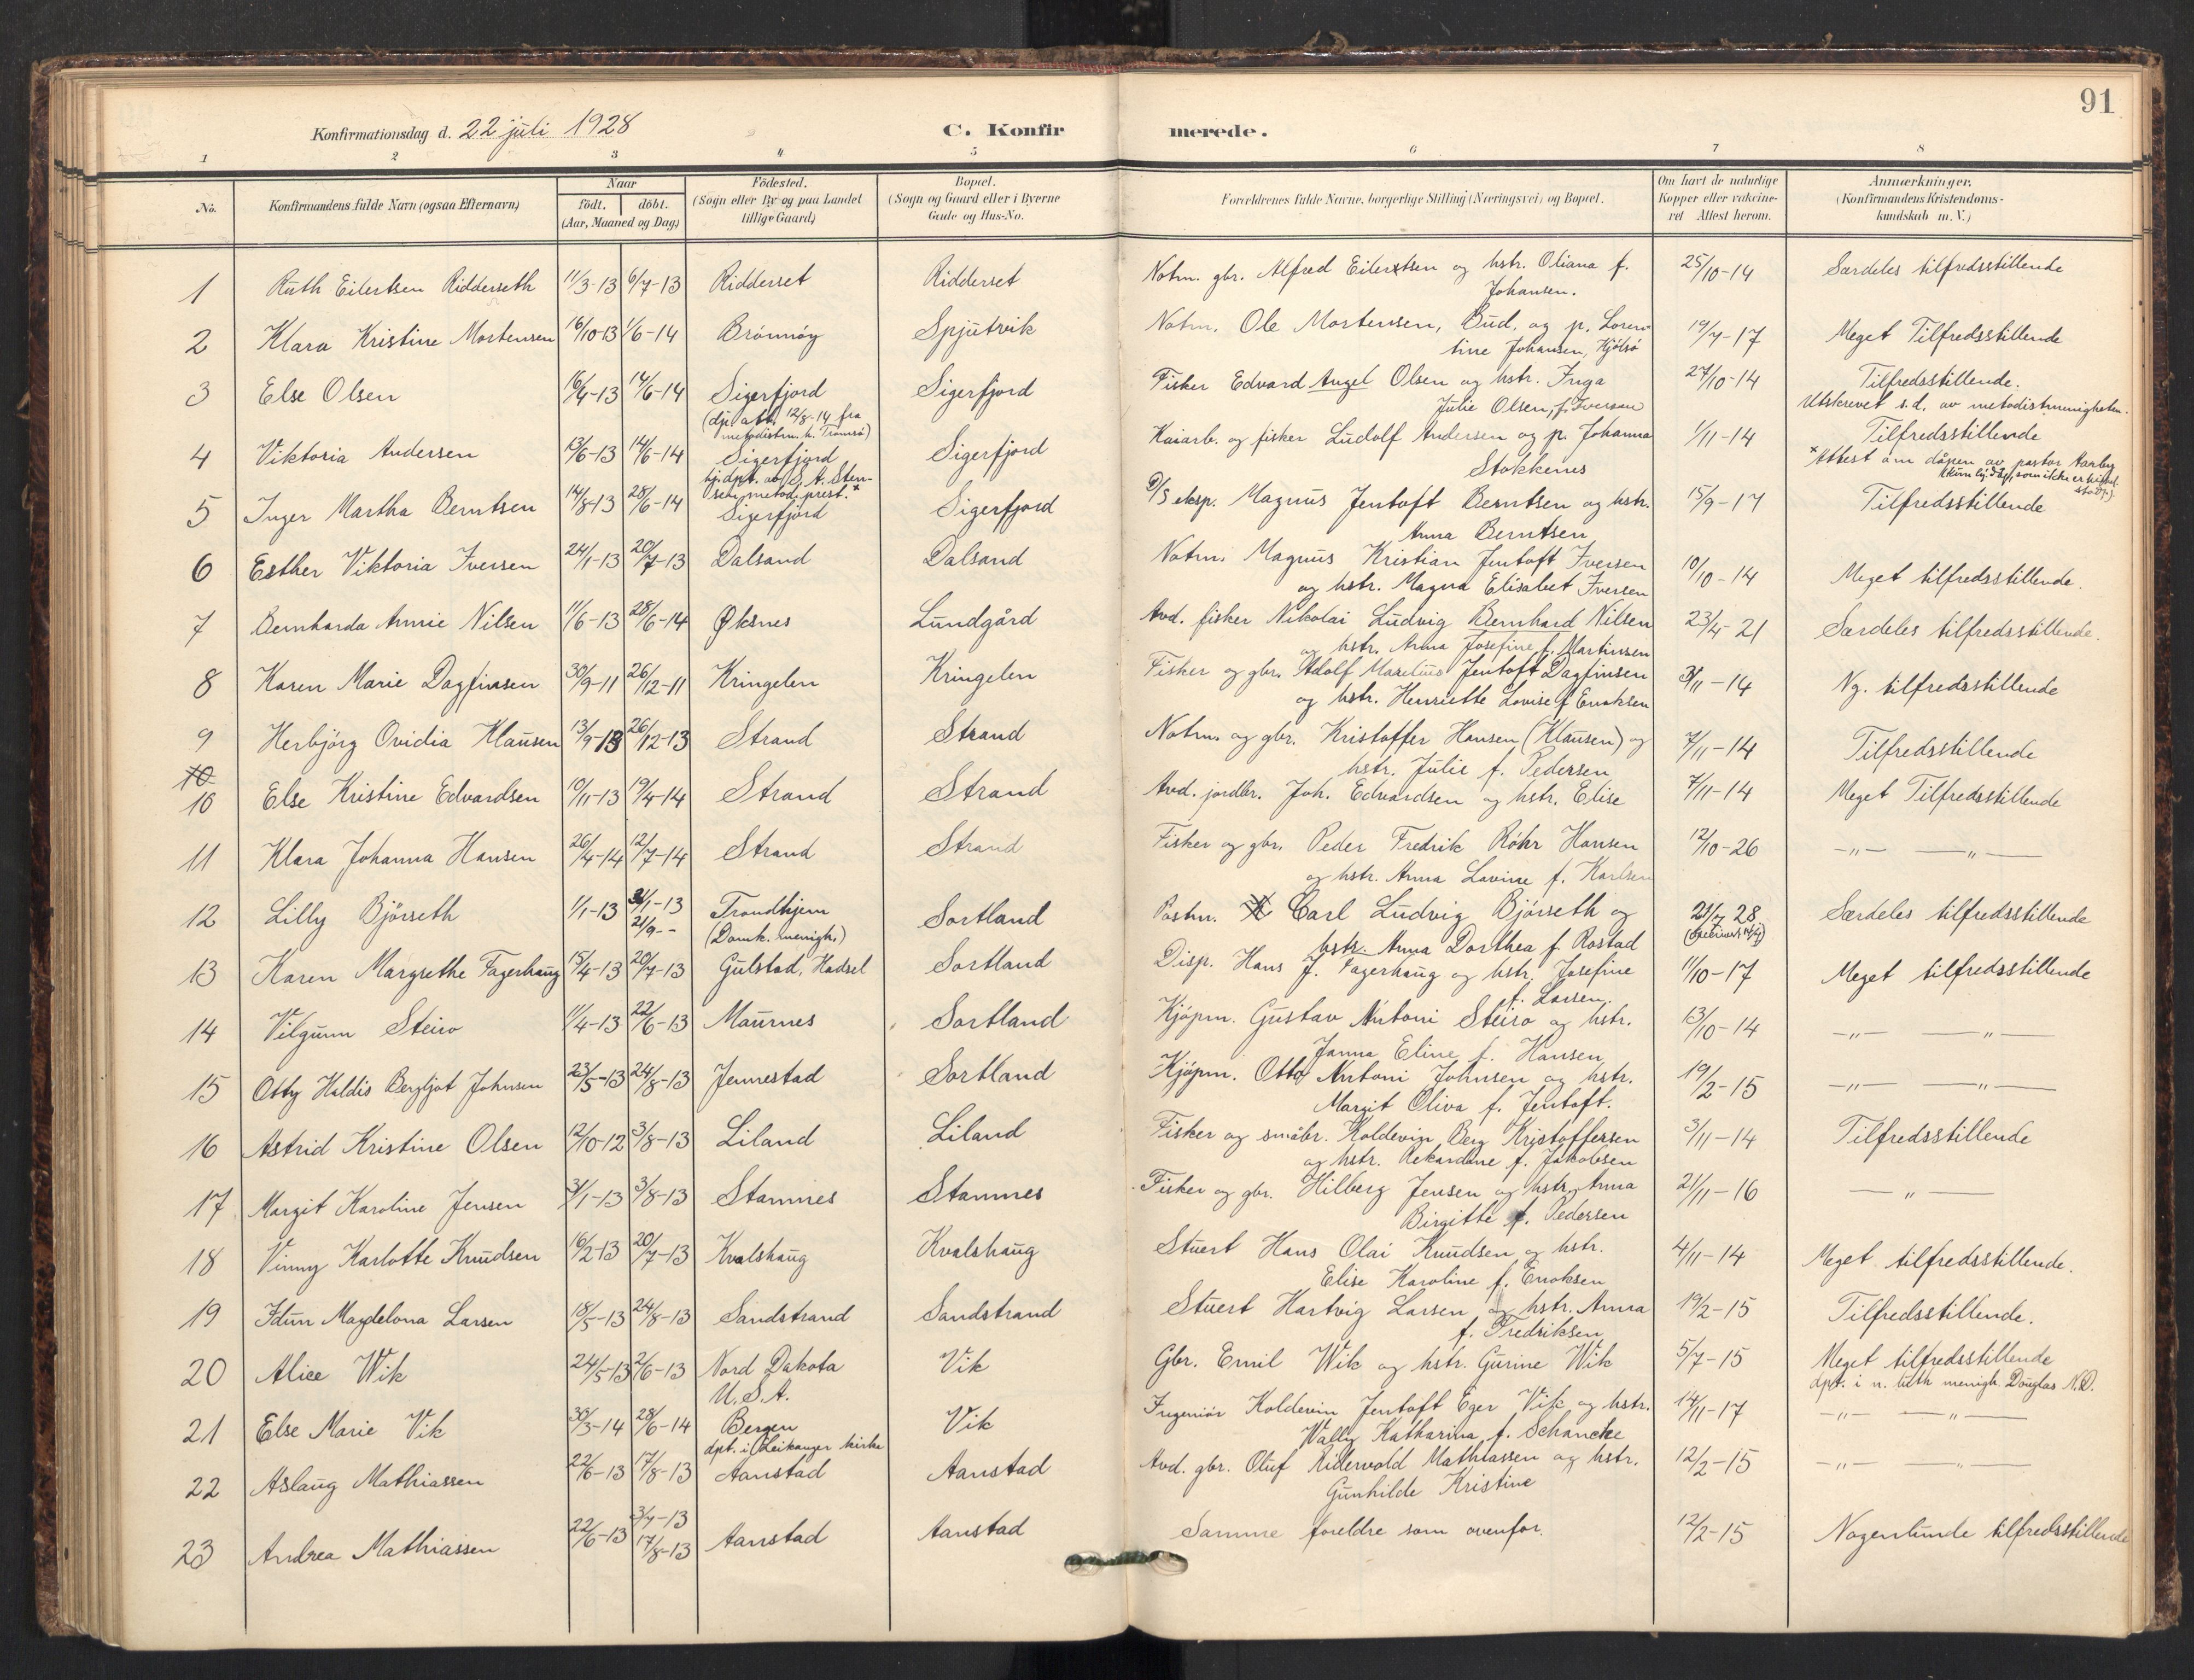 91
Konfirmationsdag d. 22 juli 1928
C. Konfirmerede.
1 2 3 4 5 6 7 8
No.
Konfirmandens fulde Navn (ogsaa Efternavn)
Naar
födt. döbt.
(Aar, Maaned og Dag)
Födested.
(Sogn eller By og paa Landet
tillige Gaard)
Bopæl.
(Sogn og Gaard eller i Byerne
Gade og Hus-No.
Forældrenes fulde Navne, borgerlige Stilling (Næringsvei) og Bopæl.
Om havt de naturlige
Kopper eller vakcine-
ret Attest herom.
Anmærkninger.
(Konfirmandens Kristendoms-
kundskab m. V.)
1 Ruth Eilertsen Ridderseth 11/3-13 6/7-13 Ridderset Ridderset Notm. gbr. Alfred Eilertsen og hstr. Oliana f. 25/10-14 Særdeles tilfredsstillende
Johansen.
2 Klara Kristine Mortensen 16/10-13 1/6-14 Brönnöy Spjutvik Notm. Ole Mortensen, Bud. og p. Loren- 19/7-17 Meget Tilfredsstillende
tine Johansen, Kjölsö
3 Else Olsen 16/4-13 14/6-14 Sigerfjord Sigerfjord Fisker Edvard Angel Olsen og hstr. Inga 27/10-14 Tilfredsstillende.
(dp. att. 12/8-14 fra
metodistm. k. Tromsö)
Julie Olsen, f. Iversen
Utskrevet s.d. av metodistmenigheten.
4 Viktoria Andersen 13/6-13 14/6-14 Sigerfjord Sigerfjord Kaiarb. og fisker Ludolf Andersen og p. Johanna 1/11-14 Tilfredsstillende
hj.dpt. av A. Sten-
sen, metod. prest. x
Stokkenes
x Attest om dåpen av pastor Aarberg
5 Inger Martha Berntsen 14/8-13 28/6-14 Sigerfjord Sigerfjord D/S eksp. Magnus Jentoft Berntsen og hstr. 15/9-17 Tilfredsstillende
Anna Berntsen
6 Esther Viktoria Iversen 24/1-13 20/7-13 Dalsand Dalsand Notm. Magnus Kristian Jentoft Iversen 10/10-14 Meget tilfredsstillende.
og hstr. Magna Elisabet Iversen
7 Bernharda Annie Nilsen 11/6-13 28/6-14 Øksnes Lundgård Avd. fisker Nikolai Ludvig Bernhard Nilsen 23/4-21 Særdeles tilfredsstillende.
og hstr. Anna Josefine f. Martinsen
8 Karen Marie Dagfinsen 30/9-11 26/12-11 Kringelen Kringelen Fisker og gbr. Adolf Marelius Jentoft Dagfinsen 3/11-14 Ng. tilfredsstillende
og hstr. Henriette Lovise f. Enoksen
9 Herbjörg Ovidia Klausen 13/9-13 26/12-13 Strand Strand Notm. og gbr. Kristoffer Hansen (Klausen) og 7/11-14 Tilfredsstillende
hstr. Julie f. Pedersen
10
10 Else Kristine Edvardsen 10/11-13 19/4-14 Strand Strand Avd. jordbr. Joh. Edvardsen og hstr. Elise 7/11-14 Meget Tilfredsstillende
11 Klara Johanna Hansen 26/4-14 12/7-14 Strand Strand Fisker og gbr. Peder Fredrik Röhr Hansen 12/10-26 -"- -"-
og hstr. Anna Lovine f. Karlsen
12 Lilly Björseth 1/1-13 31/1-13 Trondhjem Sortland Postm. Carl Ludvig Björseth og 21/7 28 Særdeles tilfredsstillende
21/9- -
(Domk. menigh.)
hstr. Anna Dorthea f. Rostad
13 Karen Margrethe Fagerhaug 15/4-13 20/7-13 Gulstad, Hadsel Sortland Disp. Hans J. Fagerhaug og hstr. Josefine 11/10-17 Meget tilfredsstillende
f. Larsen.
14 Vilgunn Steiro 11/4-13 22/6-13 Maurnes Sortland Kjöpm. Gustav Antoni Steiro og hstr. 13/10-14 -"- -"-
Janna Eline f. Hansen
15 Otty Haldis Bergljot Johnsen 23/5-13 24/8-13 Jennestad Sortland Kjöpm. Otto Antoni Johnsen og hstr. 19/2-15 -"- -"-
Margit Oliva f. Jentoft.
16 Astrid Kristine Olsen 12/10-12 3/8-13 Liland Liland Fisker og småbr. Koldevin Berg Kristoffersen 3/11-14 Tilfredsstillende
og hstr. Rekardine f. Jakobsen
17 Margit Karoline Jensen 3/1-13 3/8-13 Stamnes Stamnes Fisker og gbr. Hilberg Jensen og hstr. Anna 21/11-16 -"-
Birgitte f. Pedersen
18 Vinny Karlotte Knudsen 16/2-13 20/7-13 Kvalshaug Kvalshaug Stuert Hans Olai Knudsen og hstr. 4/11-14 Meget tilfredsstillende.
Elise Karoline f. Enoksen
19 Idun Magdelona Larsen 18/5-13 24/8-13 Sandstrand Sandstrand Stuert Hartvig Larsen og hstr. Anna 19/2-15 Tilfredsstillende.
f. Fredriksen
20 Alice Wik 24/5-13 2/6-13 Nord Dakota Vik Gbr. Emil Wik og hstr. Gurine Wik 5/7-15 Meget tilfredsstillende
U.S.A.
dpt. i n. luth menigh. Douglas N.D.
21 Else Marie Vik 30/3-14 28/6-14 Bergen Vik Ingeniör Koldevin Jentoft Eger Vik og hstr. 14/11-17 -"- -"-
dpt. i Leikanger kirke
Wally Katharina f. Schancke
22 Aslaug Mathiassen 22/6-13 17/8-13 Aanstad Aanstad Avd. gbr. Oluf Ridervold Mathiassen og hstr. 12/2-15 -"- -"-
Gunhilde Kristine
23 Andrea Mathiassen 22/6-13 3/7-13 Aanstad Aanstad Samme foreldre som ovenfor. 12/2-15 Nogenlunde tilfredsstillende
17/8-13